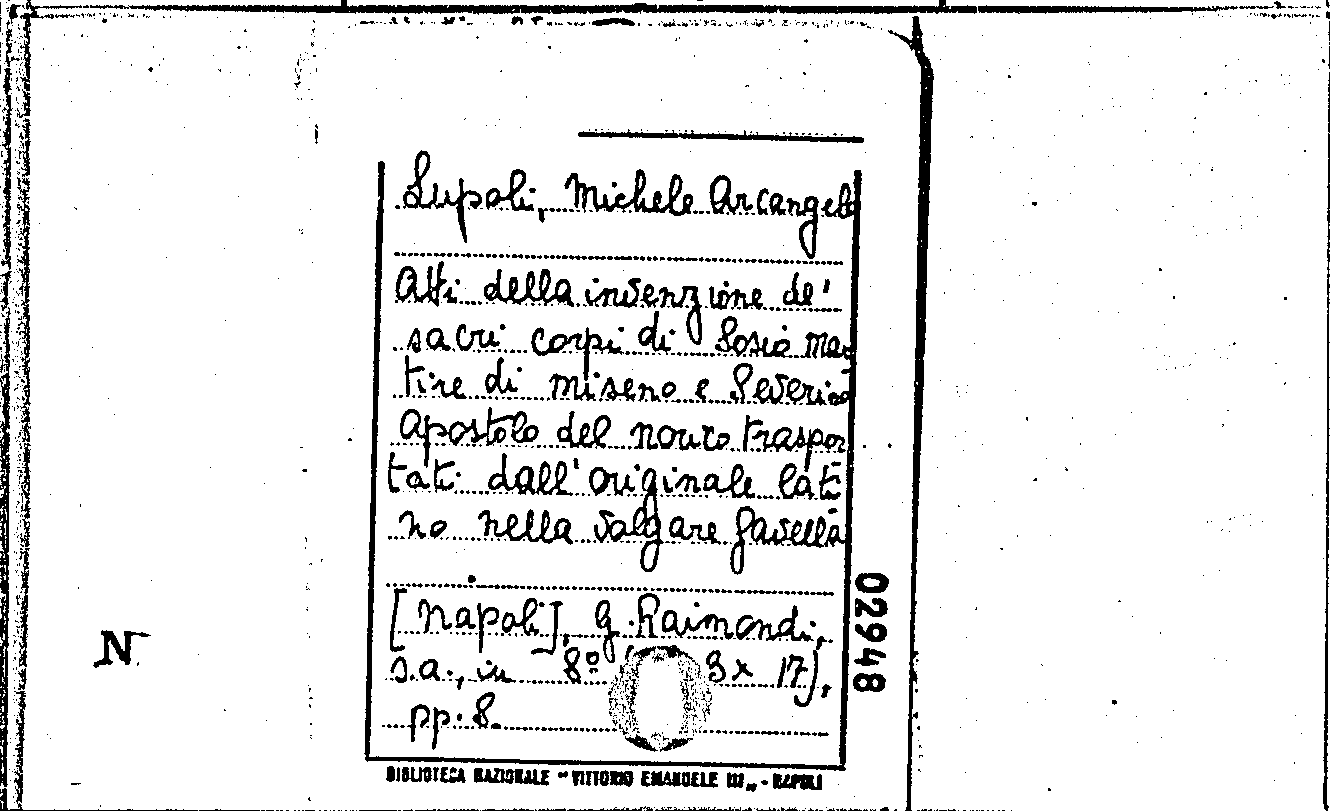 Lupoli, Michele Arcangelo
Atti della invenzione de'
sacri corpi di Sosio mar
tire di miseno e Severino
apostolo del norico traspor
tati dall'originale lati
no nella volgare favella
[Napoli], G. Raimondi,
s.a., in 8º 3 x 17),
pp. 8.
BIBLIOTECA NAZIONALE "VITTORIO EMANUELE III„ - NAPOLI
02948
N